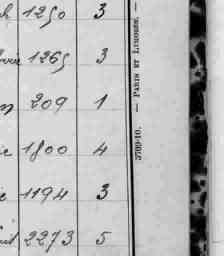 1250 3
1265 3
209 1
1800 4
1194 3
2273 5
3709-10. — PARIS ET LIMOGES. —